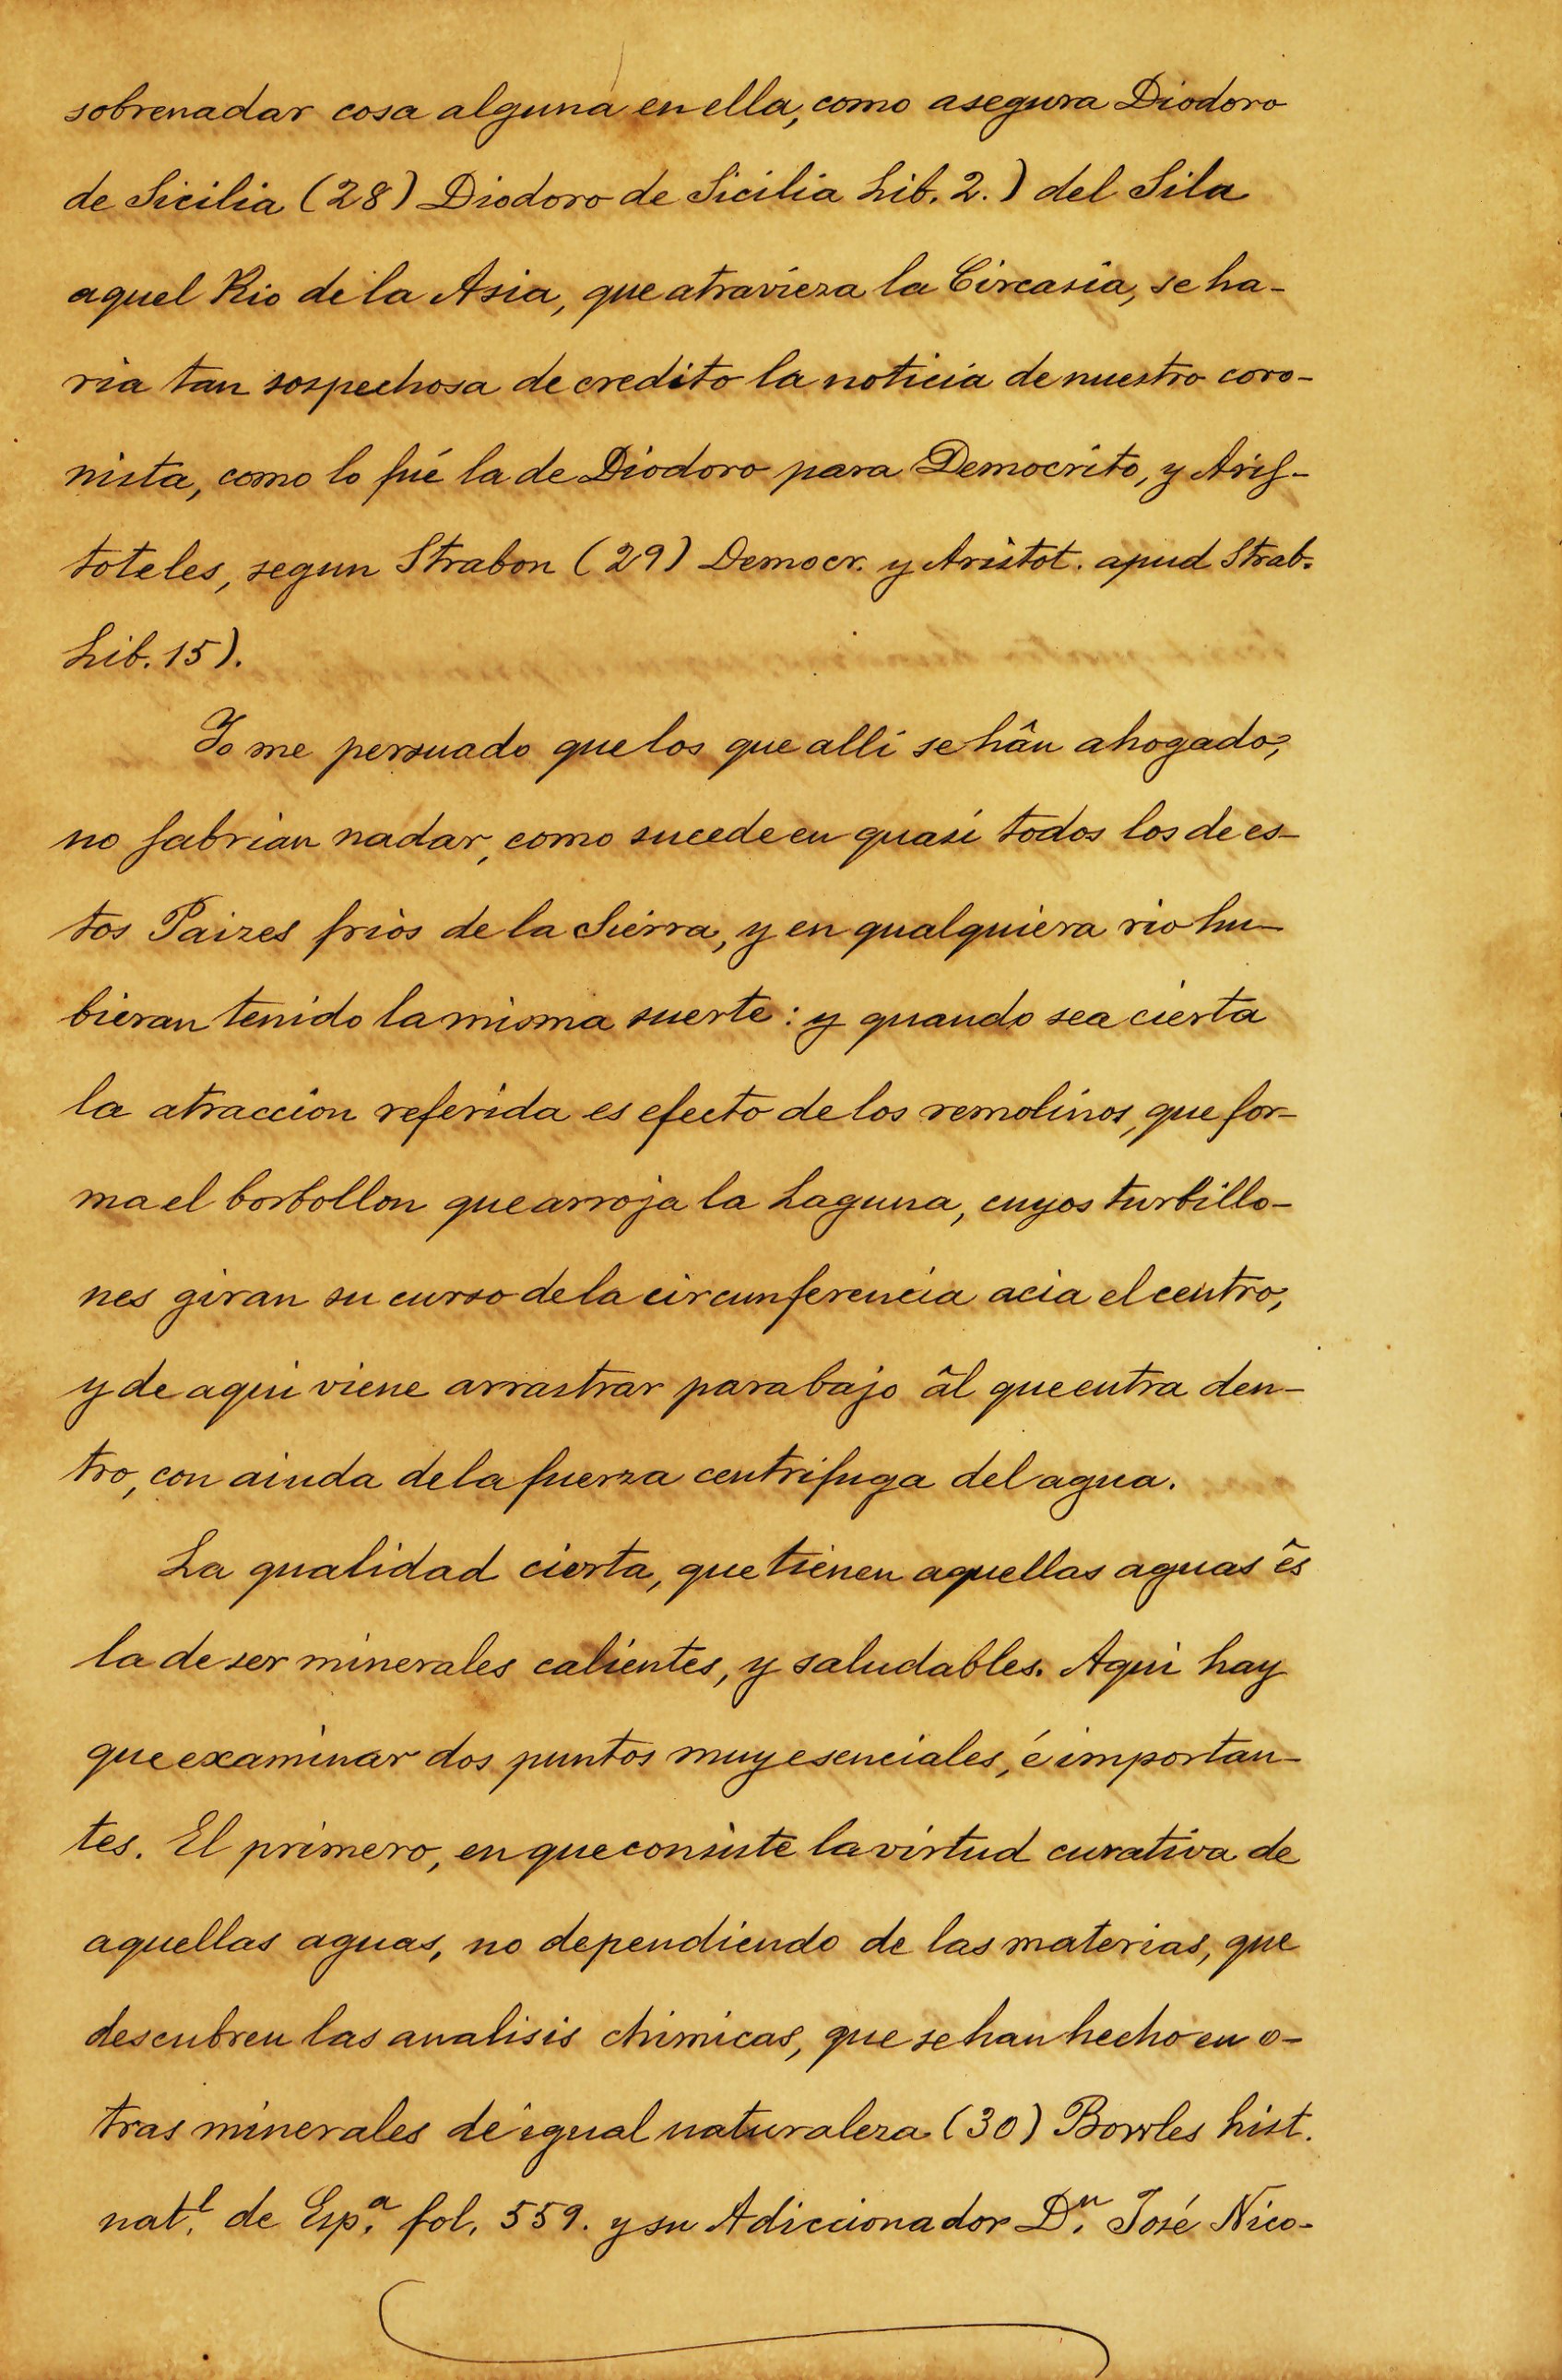 sobrenadar cosa alguna en ella, como asegura Diodoro
de Sicilia (28) Diodoro de Sicilia Lib. 2.) del Sila
aquel Rio de la Asia, que atravieza la Circasia, se ha-
ria tan sospechosa de credito la noticia de nuestro coro-
nista, como lo fué la de Diodoro para Democrito, y Aris-
toteles, segun Strabon (29) Democr. y Aristot. apud Strab.
Lib. 15).
Yo me persuado que los que alli se hân ahogado,
no sabrian nadar, como sucede en quasi todos los de es-
tos Paizes frios de la Sierra, y en qualquiera rio hu-
bieran tenido la misma suerte: y quando sea cierta
la atraccion referida es efecto de los remolinos, que for-
ma el borbollon que arroja la Laguna, cuyos turbillo-
nes giran su curso de la circunferencia acia el centro,
y de aqui viene arrastrar para bajo âl que entra den-
tro, con aiuda de la fuerza centrifuga del agua.
La qualidad cierta, que tienen aquellas aguas ês
la de ser minerales calientes, y saludables. Aqui hay
que examinar dos puntos muy esenciales, é importan-
tes. El primero, en que consiste la virtud curativa de
aquellas aguas, no dependiendo de las materias, que
descubren las analisis chimicas, que se han hecho en o-
tras minerales de igual naturaleza (30) Bowles hist.
nat.l de Esp.a fol. 559. y su Adiccionador D.n José Nico-